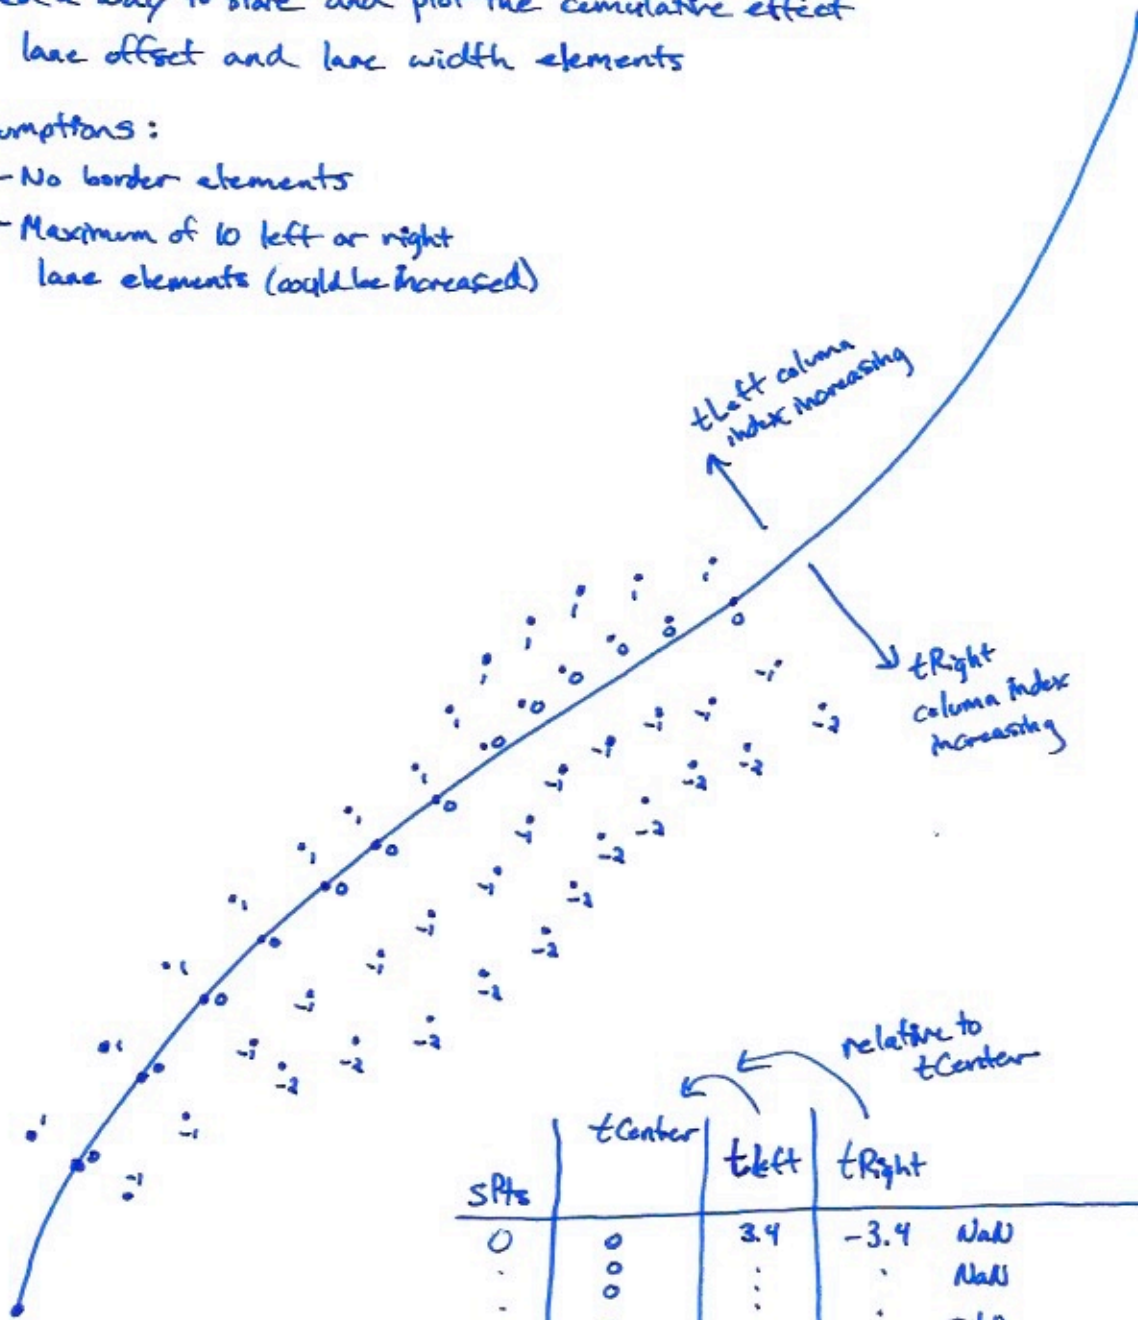 way to store and plot the cumulative effect
lane offset and lane width elements
umptions:
- No border elements
- Maximum of 10 left or right
lane elements (could be increased)
tLeft column
index increasing
tRight
column index
increasing
1 1 1 1 1 1 1 1 1 1 1 1 1
0 0 0 0 0 0 0 0 0 0 0 0 0
-1 -1 -1 -1 -1 -1 -1 -1 -1 -1 -1 -1 -1
-2 -2 -2 -2 -2 -2 -2 -2 -2 -2 -2
relative to
tCenter
sPts tCenter tLeft tRight
0 0 3.4 -3.4 NaN
0 NaN
0